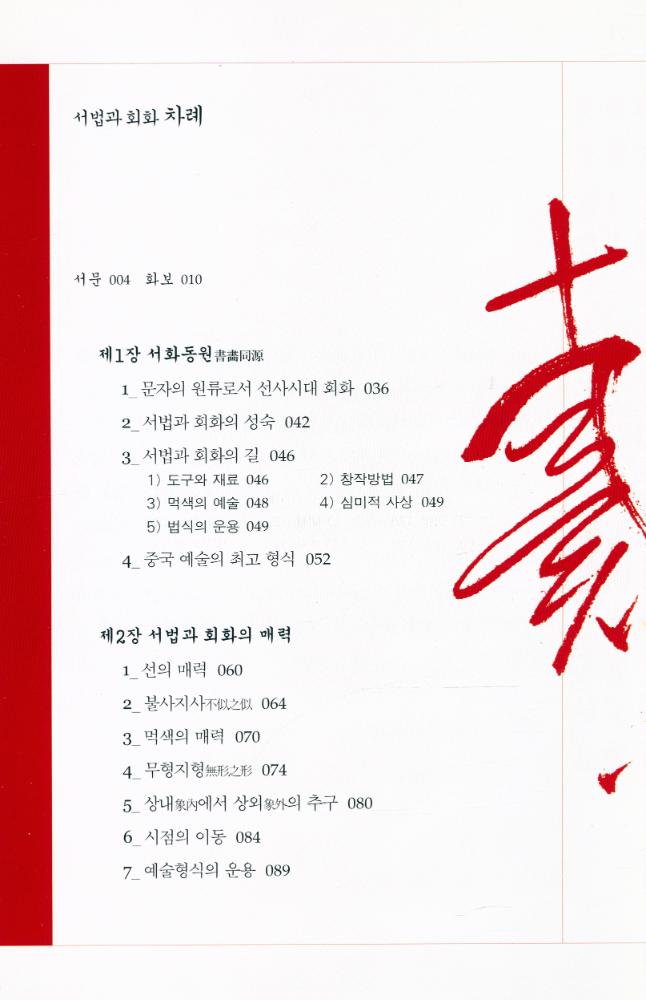 서법과 회화 차례
서문 004 화보 010
제1장 서화동원書畵同源
1_ 문자의 원류로서 선사시대 회화 036
2_ 서법과 회화의 성숙 042
3_ 서법과 회화의 길 046
1) 도구와 재료 046 2) 창작방법 047
3) 먹색의 예술 048 4) 심미적 사상 049
5) 법식의 운용 049
4_ 중국 예술의 최고 형식 052
제2장 서법과 회화의 매력
1_ 선의 매력 060
2_ 불사지사不似之似 064
3_ 먹색의 매력 070
4_ 무형지형無形之形 074
5_ 상내象內에서 상외象外의 추구 080
6_ 시점의 이동 084
7_ 예술형식의 운용 089